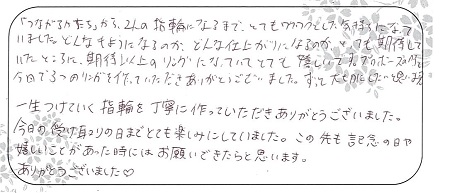 「つながるかたち」から、2人の指輪になるまで、とてもワクワクとした気持ちになって
いました。どんなもようになるのか、どんな仕上がりになるのか、とても期待して
いたところに、期待以上のリングになっていてとても嬉しいです。
今日で3つのリングを作っていただきありがとうございました。ずっと大切にしたいと思います
一生つけていく指輪を丁寧に作っていただきありがとうございました。
今日の受け取りの日までとても楽しみにしていました。この先も記念の日や
嬉しいことがあった時にはお願いできたらと思います。
ありがとうございました♡